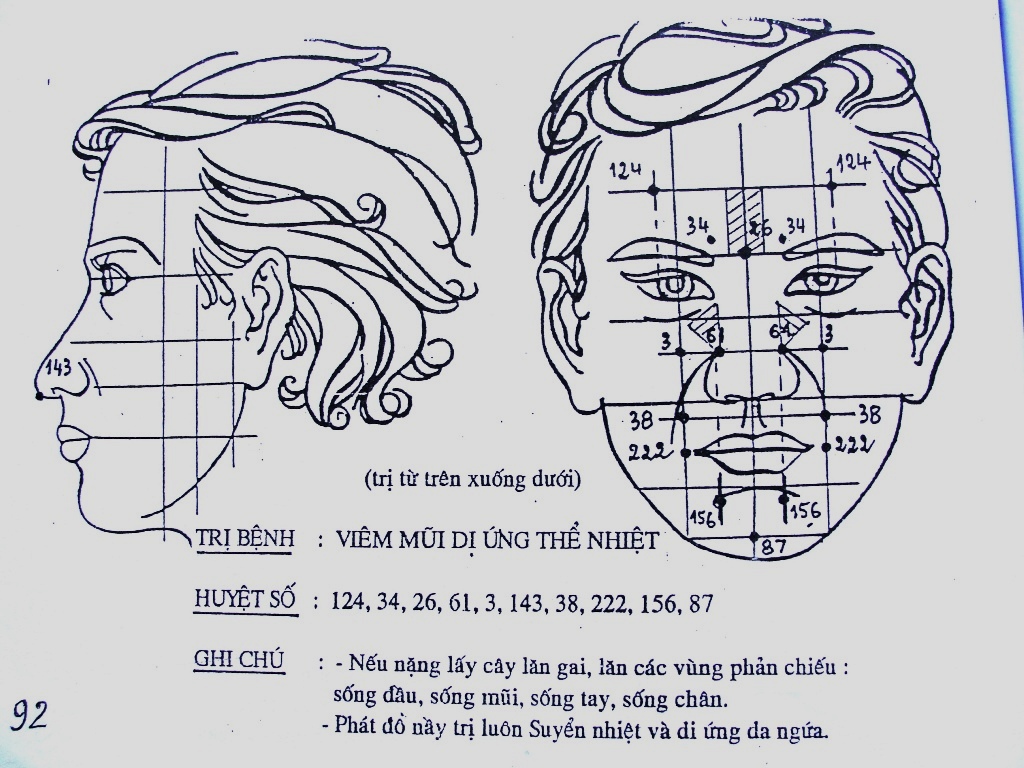 124
124
34
26
34
61
61
3
3
143
38
38
222
222
156
156
87
(trị từ trên xuống dưới)
TRỊ BỆNH : VIÊM MŨI DỊ ỨNG THỂ NHIỆT
HUYỆT SỐ : 124, 34, 26, 61, 3, 143, 38, 222, 156, 87
GHI CHÚ : - Nếu nặng lấy cây lăn gai, lăn các vùng phản chiếu :
sống đầu, sống mũi, sống tay, sống chân.
- Phát đồ nầy trị luôn Suyển nhiệt và dị ứng da ngứa.
92